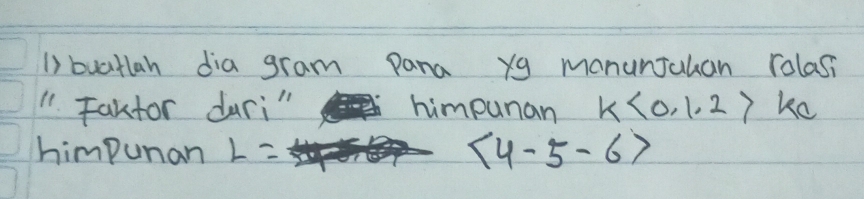 1) buatlah dia gram Pana yg manunjuhan rolasi
"Faktor dari" himpunan K<0,1,2> ke
himpunan L = <4-5-6>